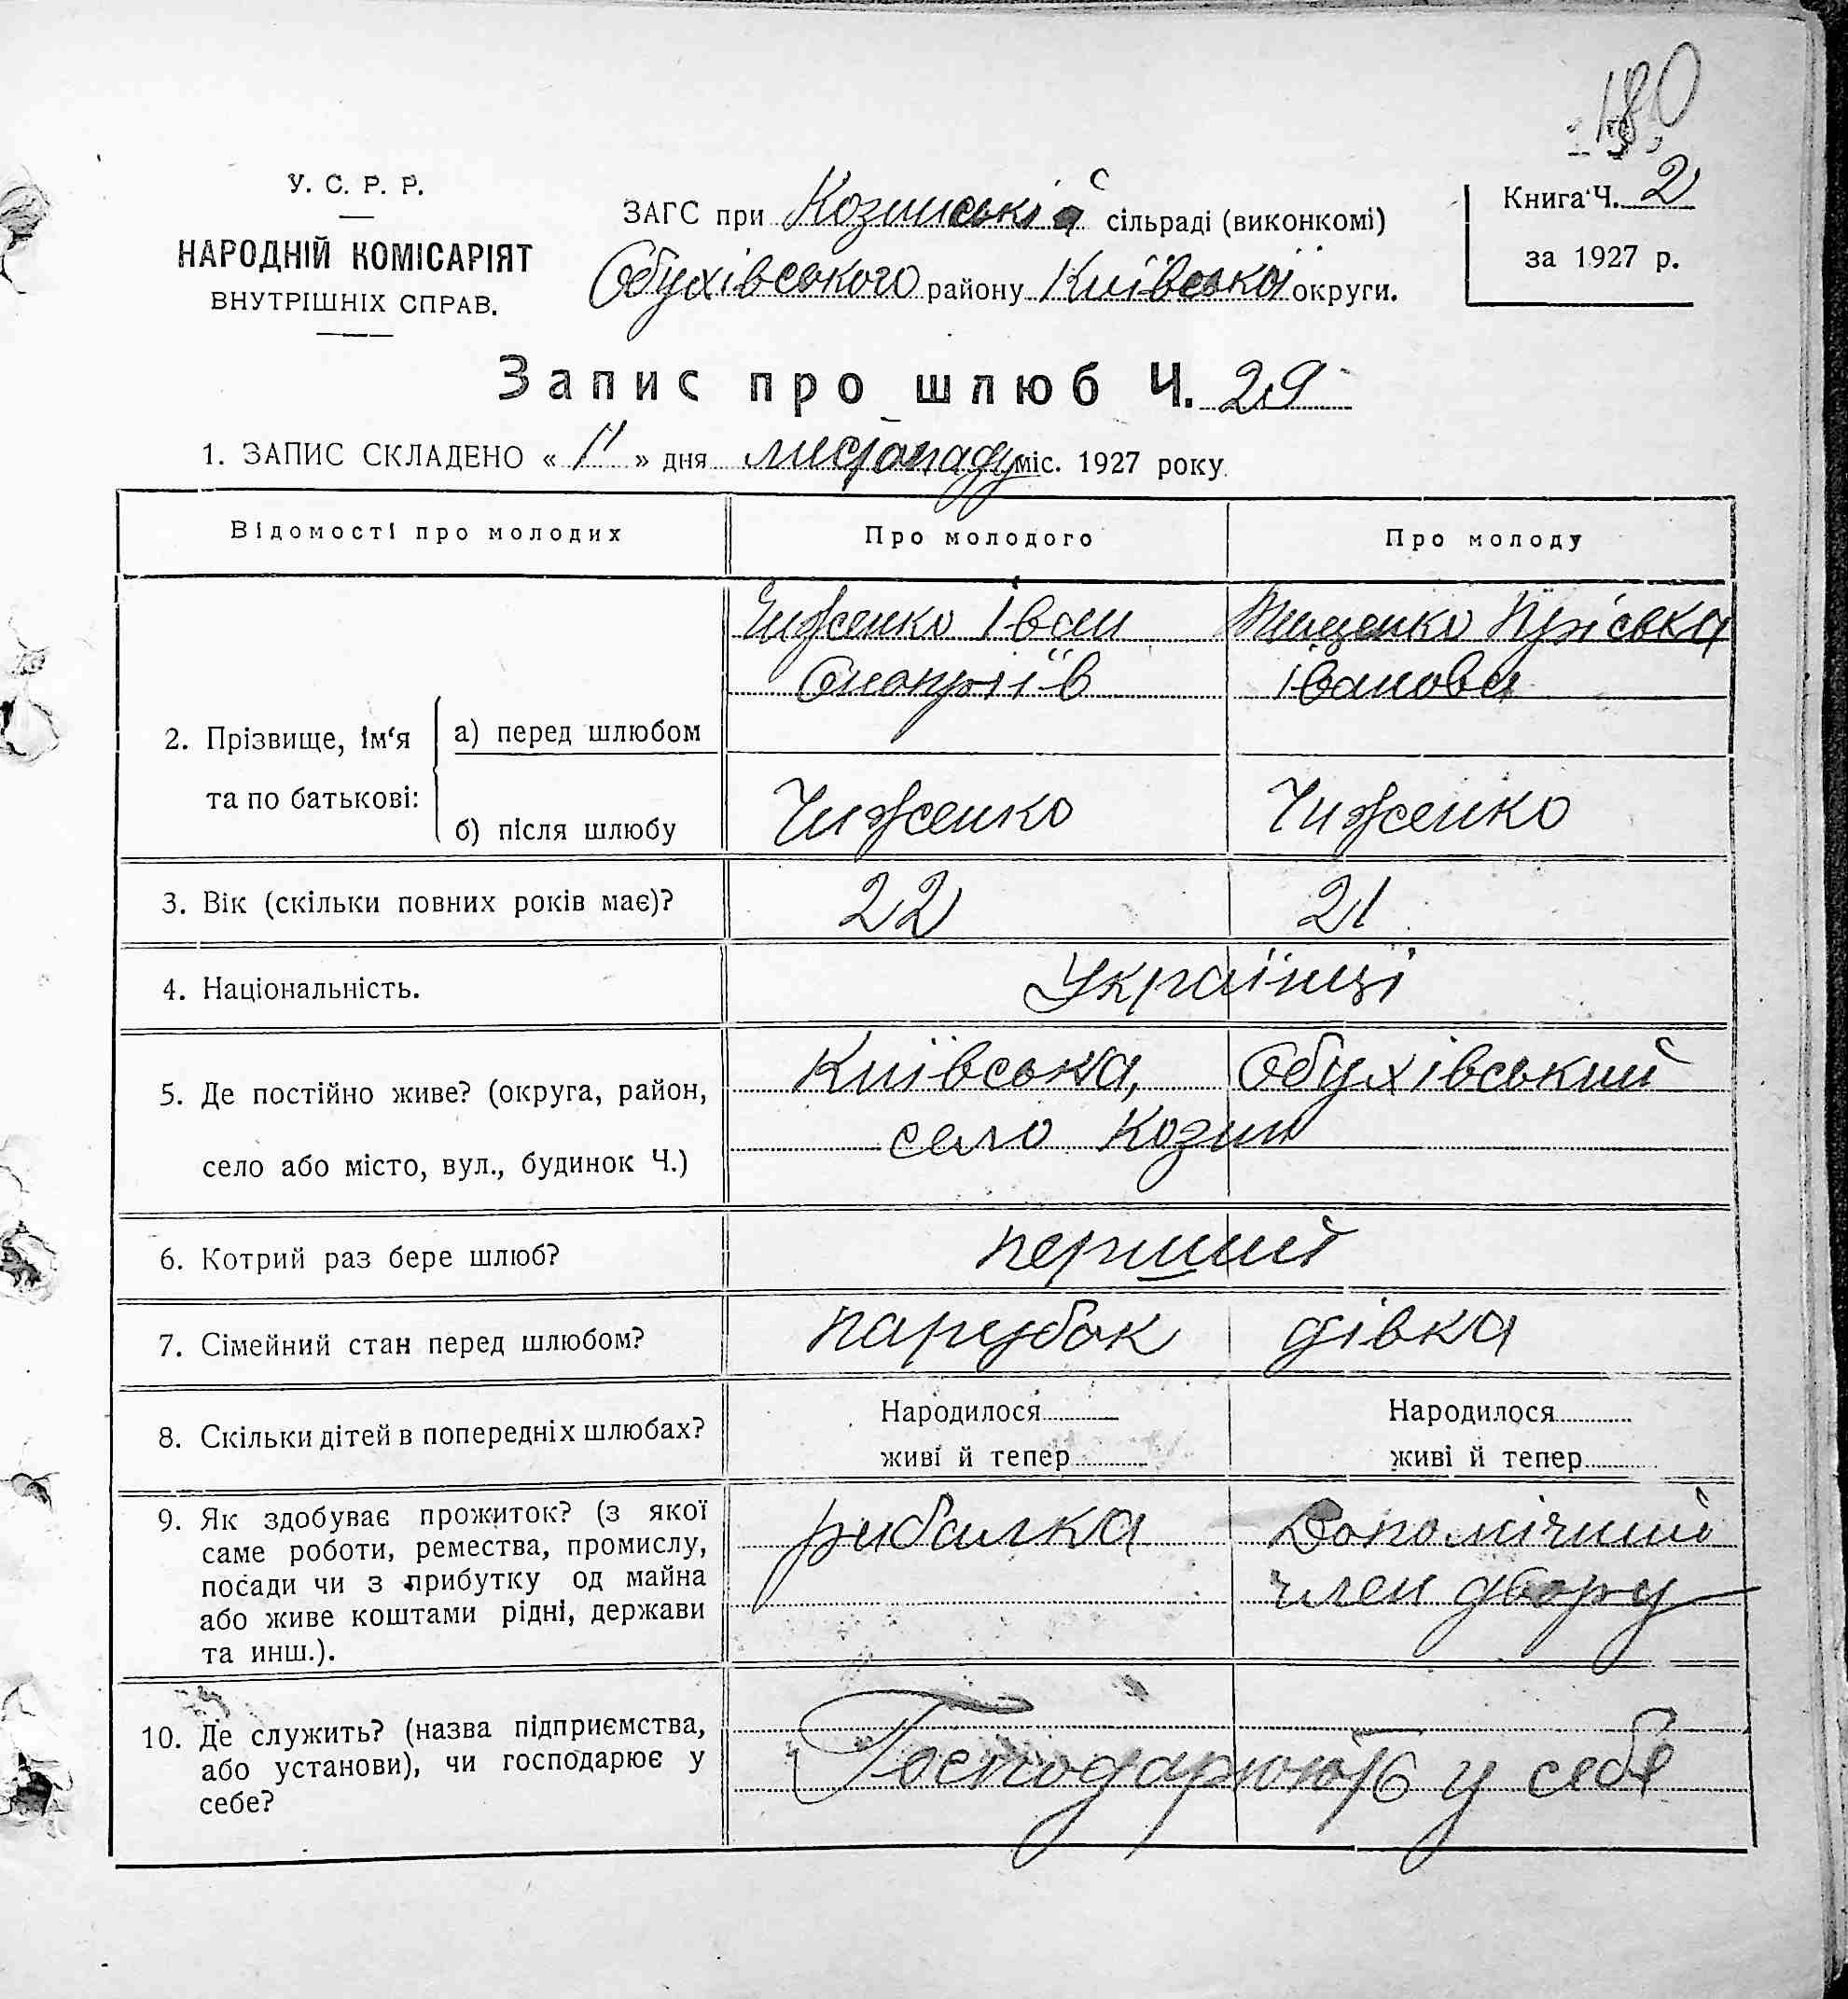 180
У. С. Р. Р.
НАРОДНІЙ КОМІСАРІЯТ
ВНУТРІШНІХ СПРАВ.
ЗАГС при Козинській сільраді (виконкомі)
Обухівського району Київської округи.
Книга Ч. 2
за 1927 р.
Запис про шлюб Ч. 29
1. ЗАПИС СКЛАДЕНО « 11 » дня листопаду міс. 1927 року
Відомості про молодих Про молодого Про молоду
Чиженко Іван Тищенко Пріська
Онопріїв Іванова
2. Прізвище, ім'я та по батькові:
а) перед шлюбом
б) після шлюбу Чиженко Чиженко
3. Вік (скільки повних років має)? 22 21
4. Національність. Українці
5. Де постійно живе? (округа, район, Київська, Обухівський
село або місто, вул., будинок Ч.) село Козин
6. Котрий раз бере шлюб? перший
7. Сімейний стан перед шлюбом? парубок дівка
8. Скільки дітей в попередніх шлюбах? Народилося Народилося
живі й тепер живі й тепер
9. Як здобуває прожиток? (з якої рибалка Допомічний
саме роботи, ремества, промислу, член двору
посади чи з прибутку од майна
або живе коштами рідні, держави
та инш.).
10. Де служить? (назва підприємства,
або установи), чи господарює у Господарюють у себе
себе?